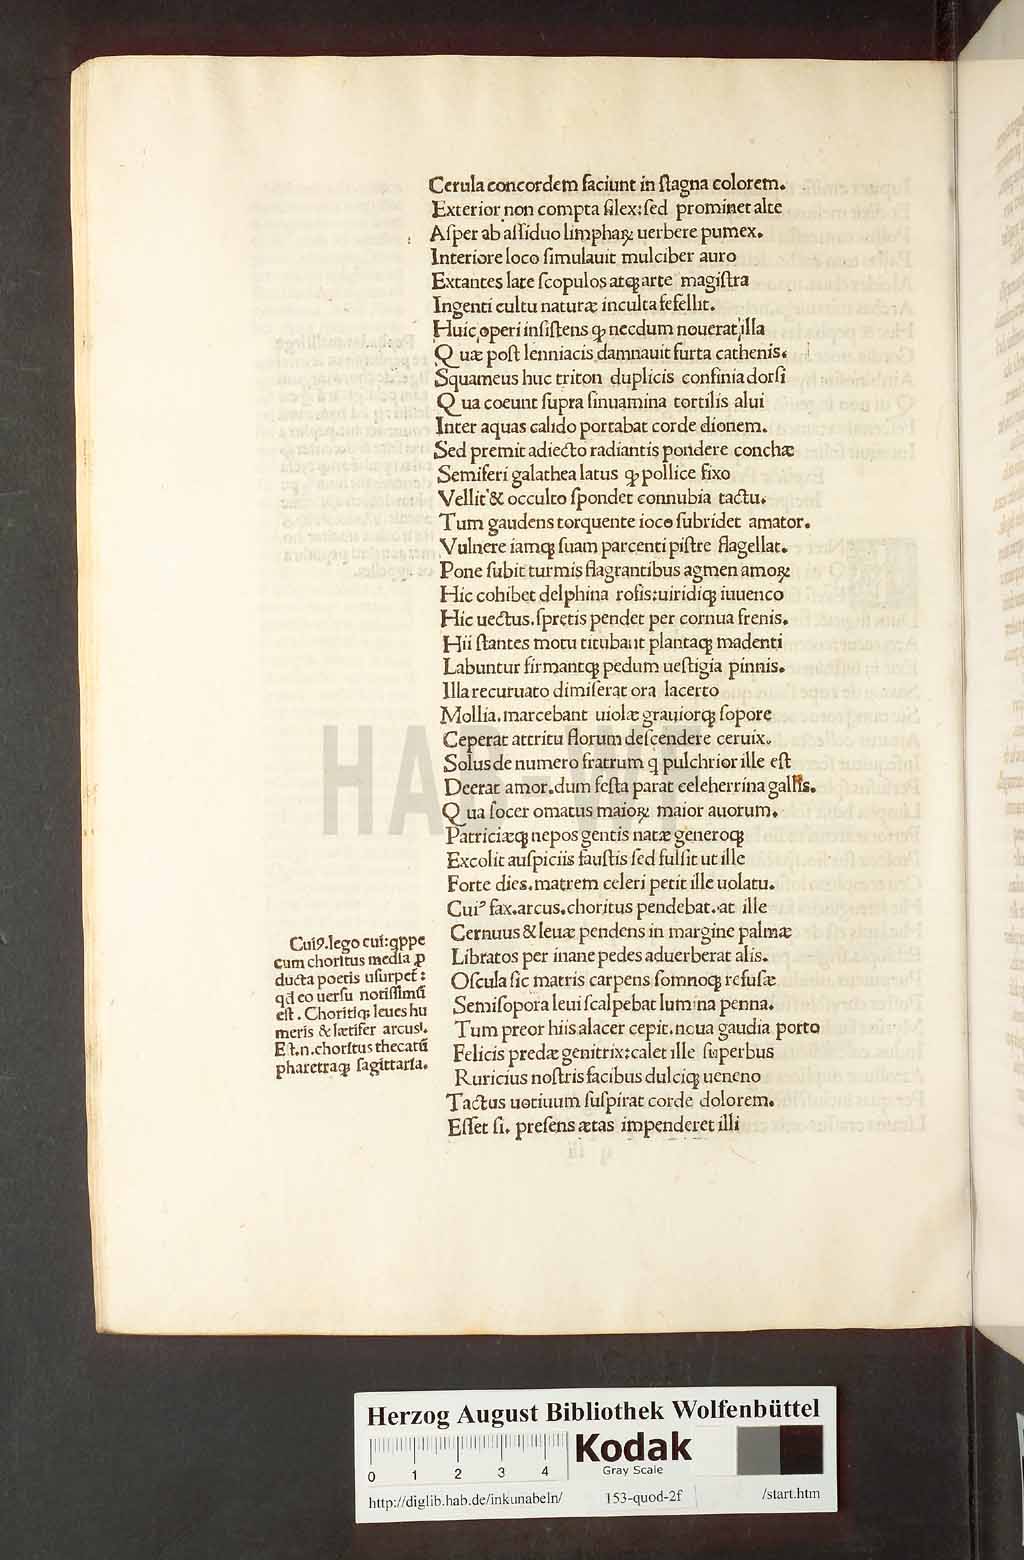 Cerula concordem faciunt in ſtagna colorem.
Exterior non compta ſilex: ſed prominet alte
Aſper ab aſſiduo limphaꝝ uerbere pumex.
Interiore loco ſimulauit mulciber auro
Extantes late ſcopulos atq; arte magiſtra
Ingenti cultu naturæ inculta fefellit.
Huic operi inſiſtens ꝙ necdum nouerat illa
Quæ poſt lenniacis damnauit furta cathenis.
Squameus huc triton duplicis confinia dorſi
Qua coeunt ſupra ſinuamina tortilis alui
Inter aquas calido portabat corde dionem.
Sed premit adiecto radiantis pondere conchæ
Semiferi galathea latus ꝙ pollice fixo
Vellit & occulto ſpondet connubia tactu.
Tum gaudens torquente ioco ſubridet amator.
Vulnere iamq; ſuam parcenti piſtre flagellat.
Pone ſubit turmis flagrantibus agmen amoꝝ
Hic cohibet delphina roſis: uiridiq; iuuenco
Hic uectus. ſpretis pendet per cornua frenis.
Hii ſtantes motu titubant plantaq; madenti
Labuntur firmantq; pedum ueſtigia pinnis.
Illa recuruato dimiſerat ora lacerto
Mollia. marcebant uiolæ grauiorq; ſopore
Ceperat attritu florum deſcendere ceruix.
Solus de numero fratrum q pulchrior ille eſt
Deerat amor. dum feſta parat celeherrina gallis.
Qua ſocer omatus maioꝝ maior auorum.
Patriciæq; nepos gentis natæ generoq;
Excolit auſpiciis fauſtis ſed fulſit ut ille
Forte dies. matrem celeri petit ille uolatu.
Cuiꝰ fax. arcus. choritus pendebat. at ille
Cernuus & leuæ pendens in margine palmæ
Libratos per inane pedes aduerberat alis.
Oſcula ſic matris carpens ſomnoq; refuſæ
Semiſopora leui ſcalpebat lumina penna.
Tum preor hiis alacer cepit. noua gaudia porto
Felicis predæ genitrix: calet ille ſuperbus
Ruricius noſtris facibus dulciq; ueneno
Tactus uotiuum ſuſpirat corde dolorem.
Eſſet ſi. preſens ætas impenderet illi
Cuiꝰ. lego cui: qppe
cum choritus media ꝓ
ducta poetis uſurpet̄:
qd̄ eo uerſu notiſſimū
eſt. Choritiq; leues hu
meris & lætifer arcus.
Eſt. n. choritus thecarū
pharetraq; ſagittaria.
HAB-WF
Herzog August Bibliothek Wolfenbüttel
0 1 2 3 4
Kodak
Gray Scale
http://diglib.hab.de/inkunabeln/ 153-quod-2f /start.htm